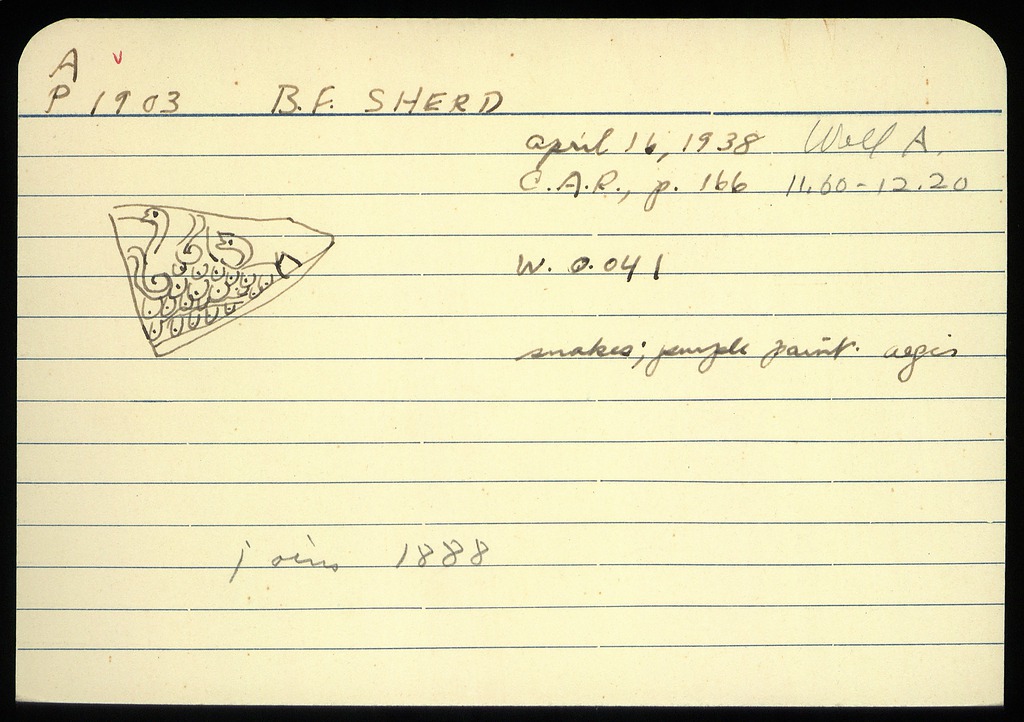 A v
P 1903 B.F. SHERD
april 16, 1938 Well A.
C.A.R., p. 166 11.60-12.20
W. 0.041
snakes; purple paint. aegis
joins 1888